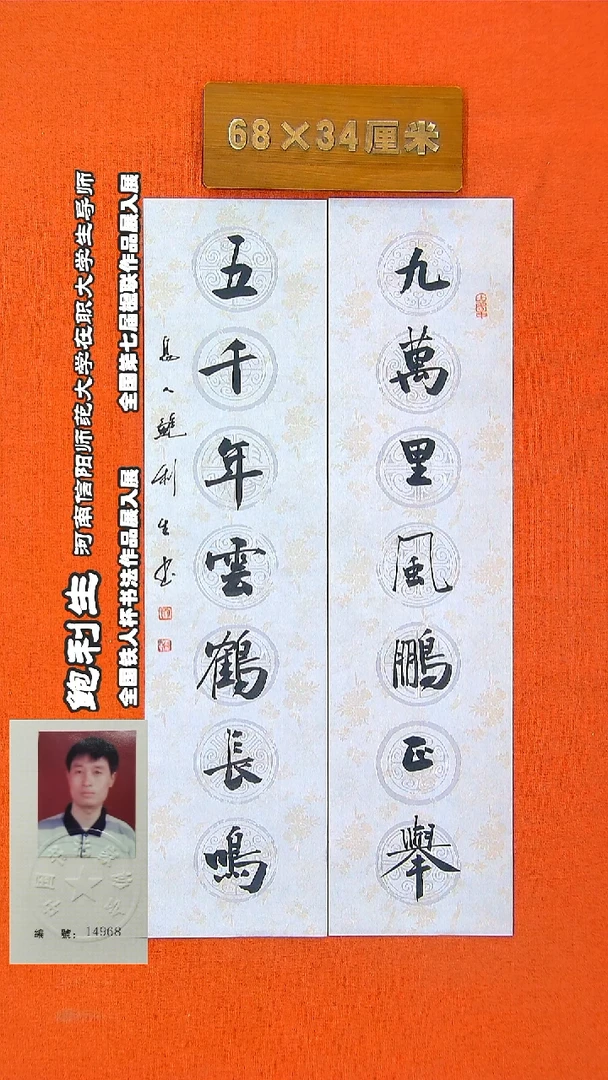 68×34厘米
九萬里風鵬正舉
五千年雲鶴長鳴
鮑利生書
鲍利生 河南信阳师范大学在职大学生导师
全国铁人杯书法作品展入展 全国第七届楹联作品展入展
編號：14968